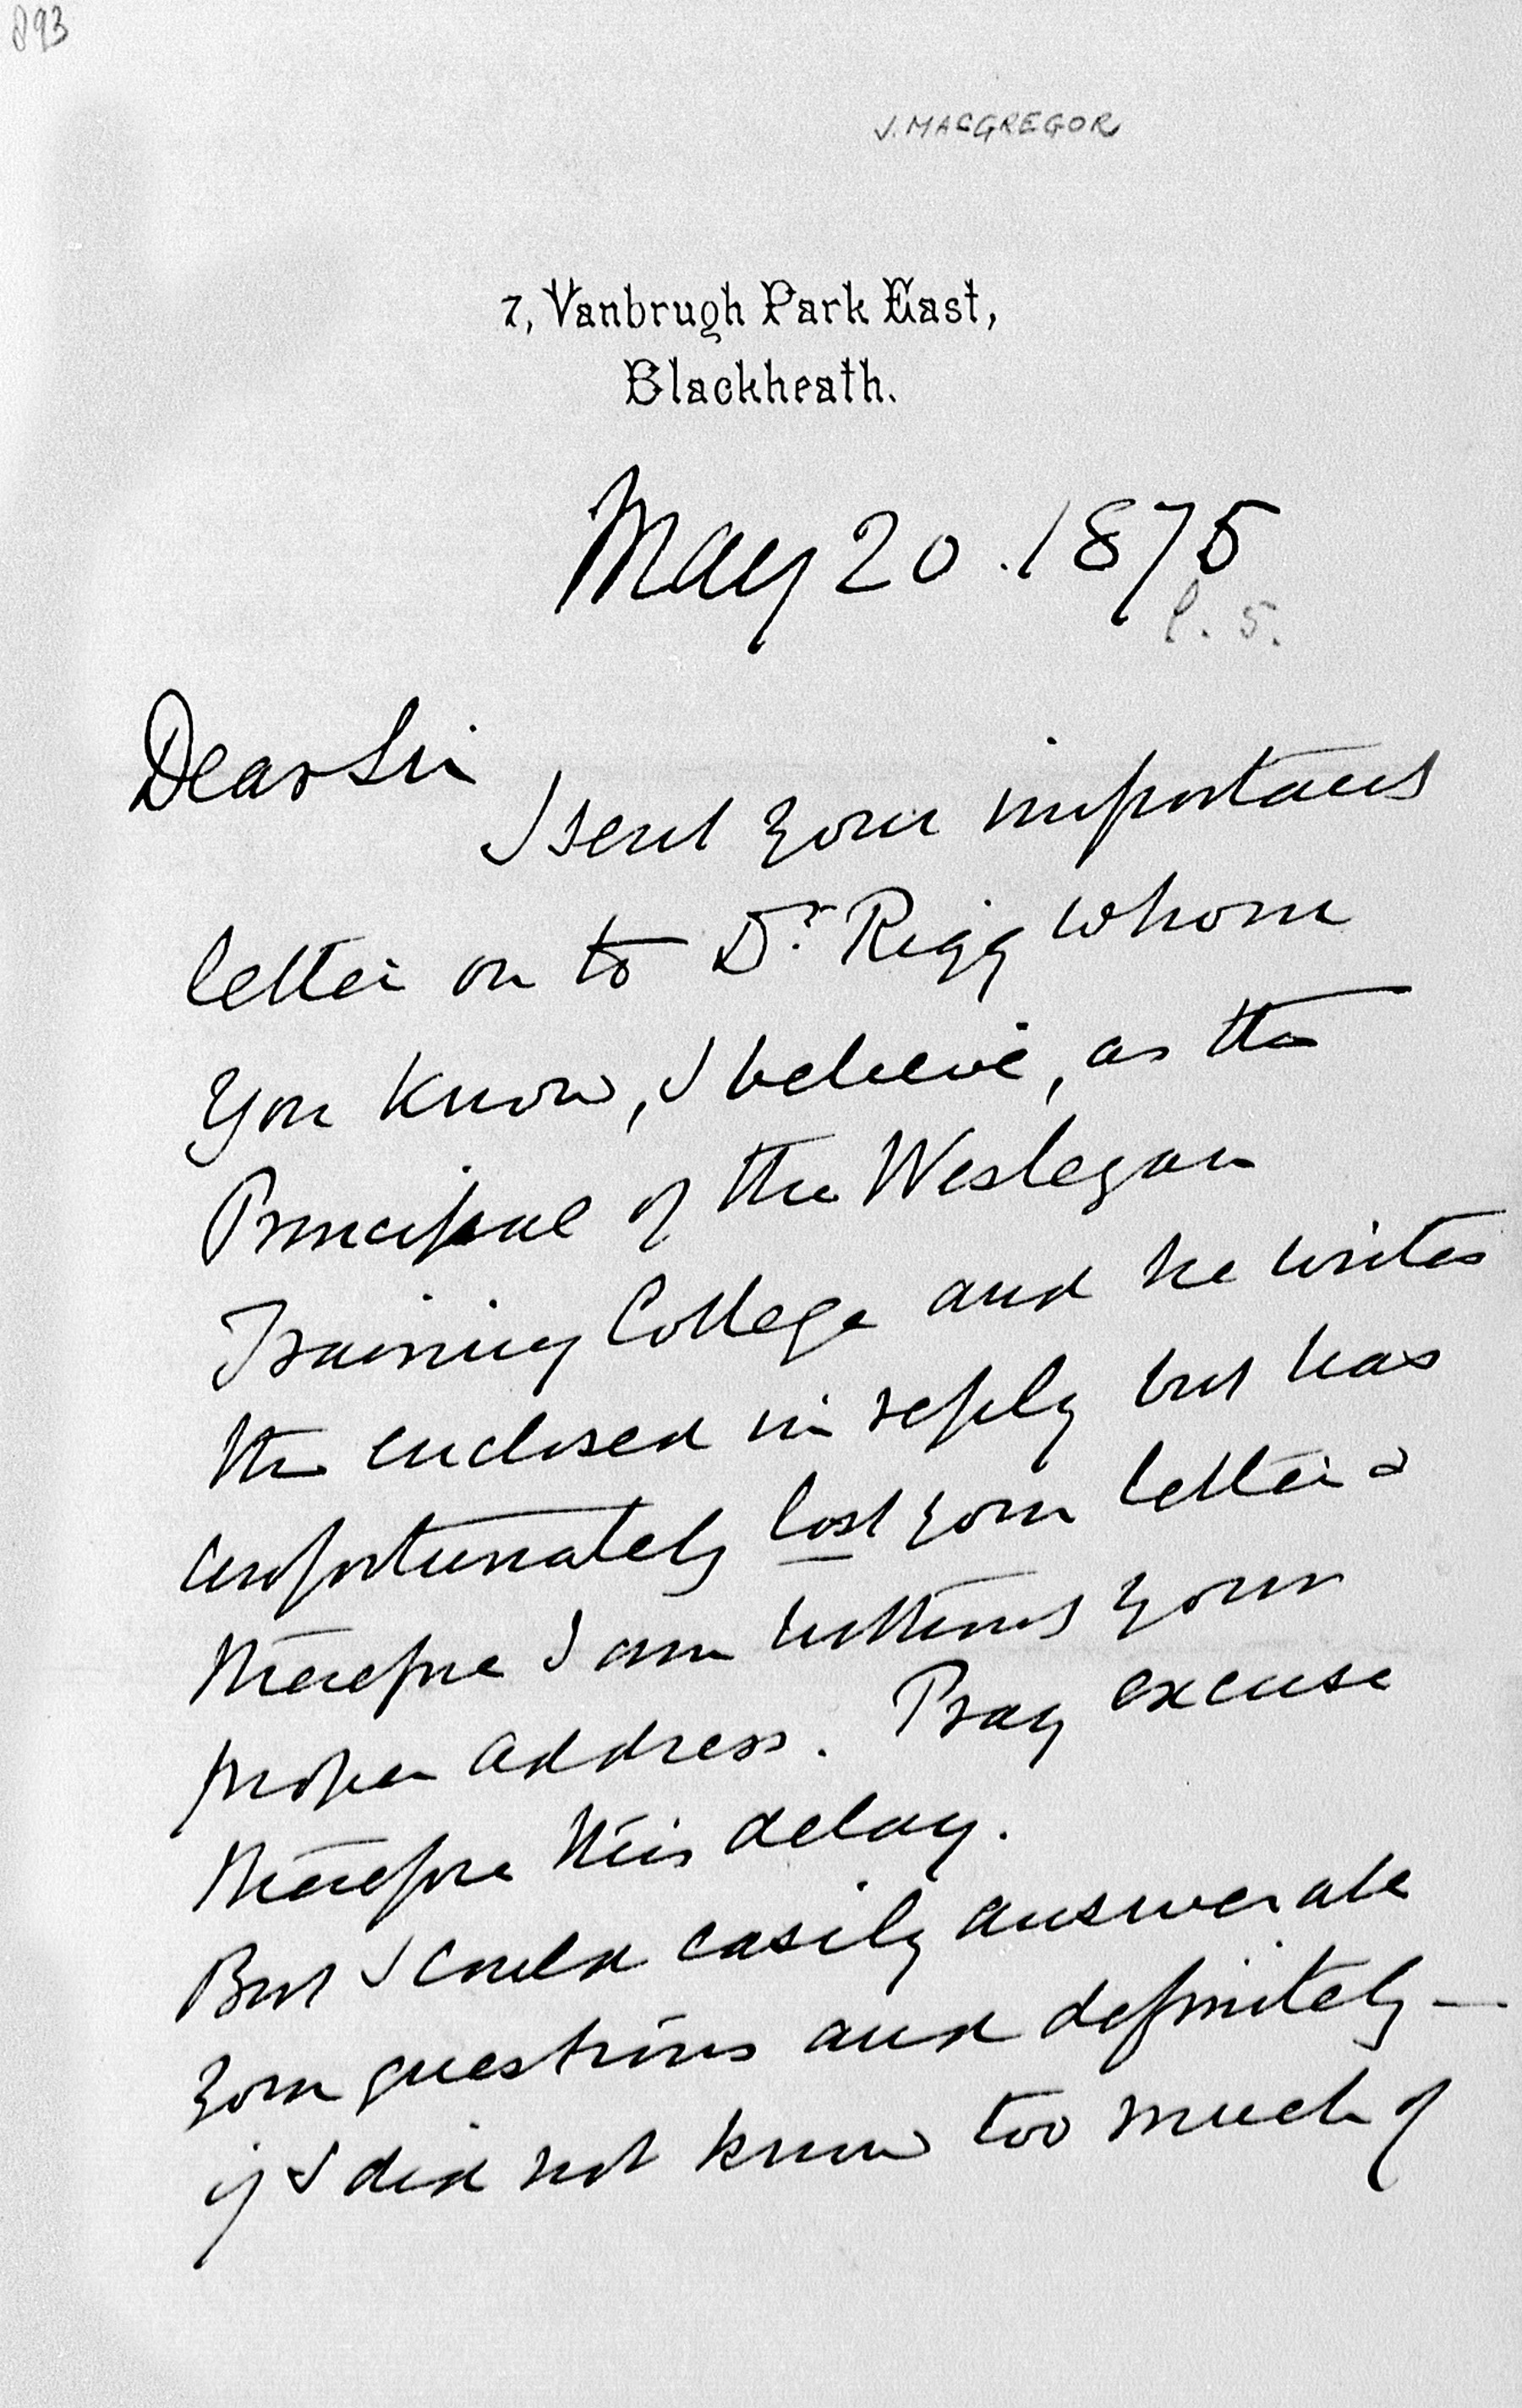 893
J. MACGREGOR
7, Vanbrugh Park East,
Blackheath.
May 20. 1875
l. 5.
Dear Sir
I sent your important
letter on to Dr. Rigg whom
you know, I believe, as the
Principal of the Wesleyan
Training College and he writes
the enclosed in reply but has
unfortunately lost your letter &
therefore I am without your
proper address. Pray excuse
therefore this delay.
But I could easily answer all
your questions and definitely —
if I did not know too much of